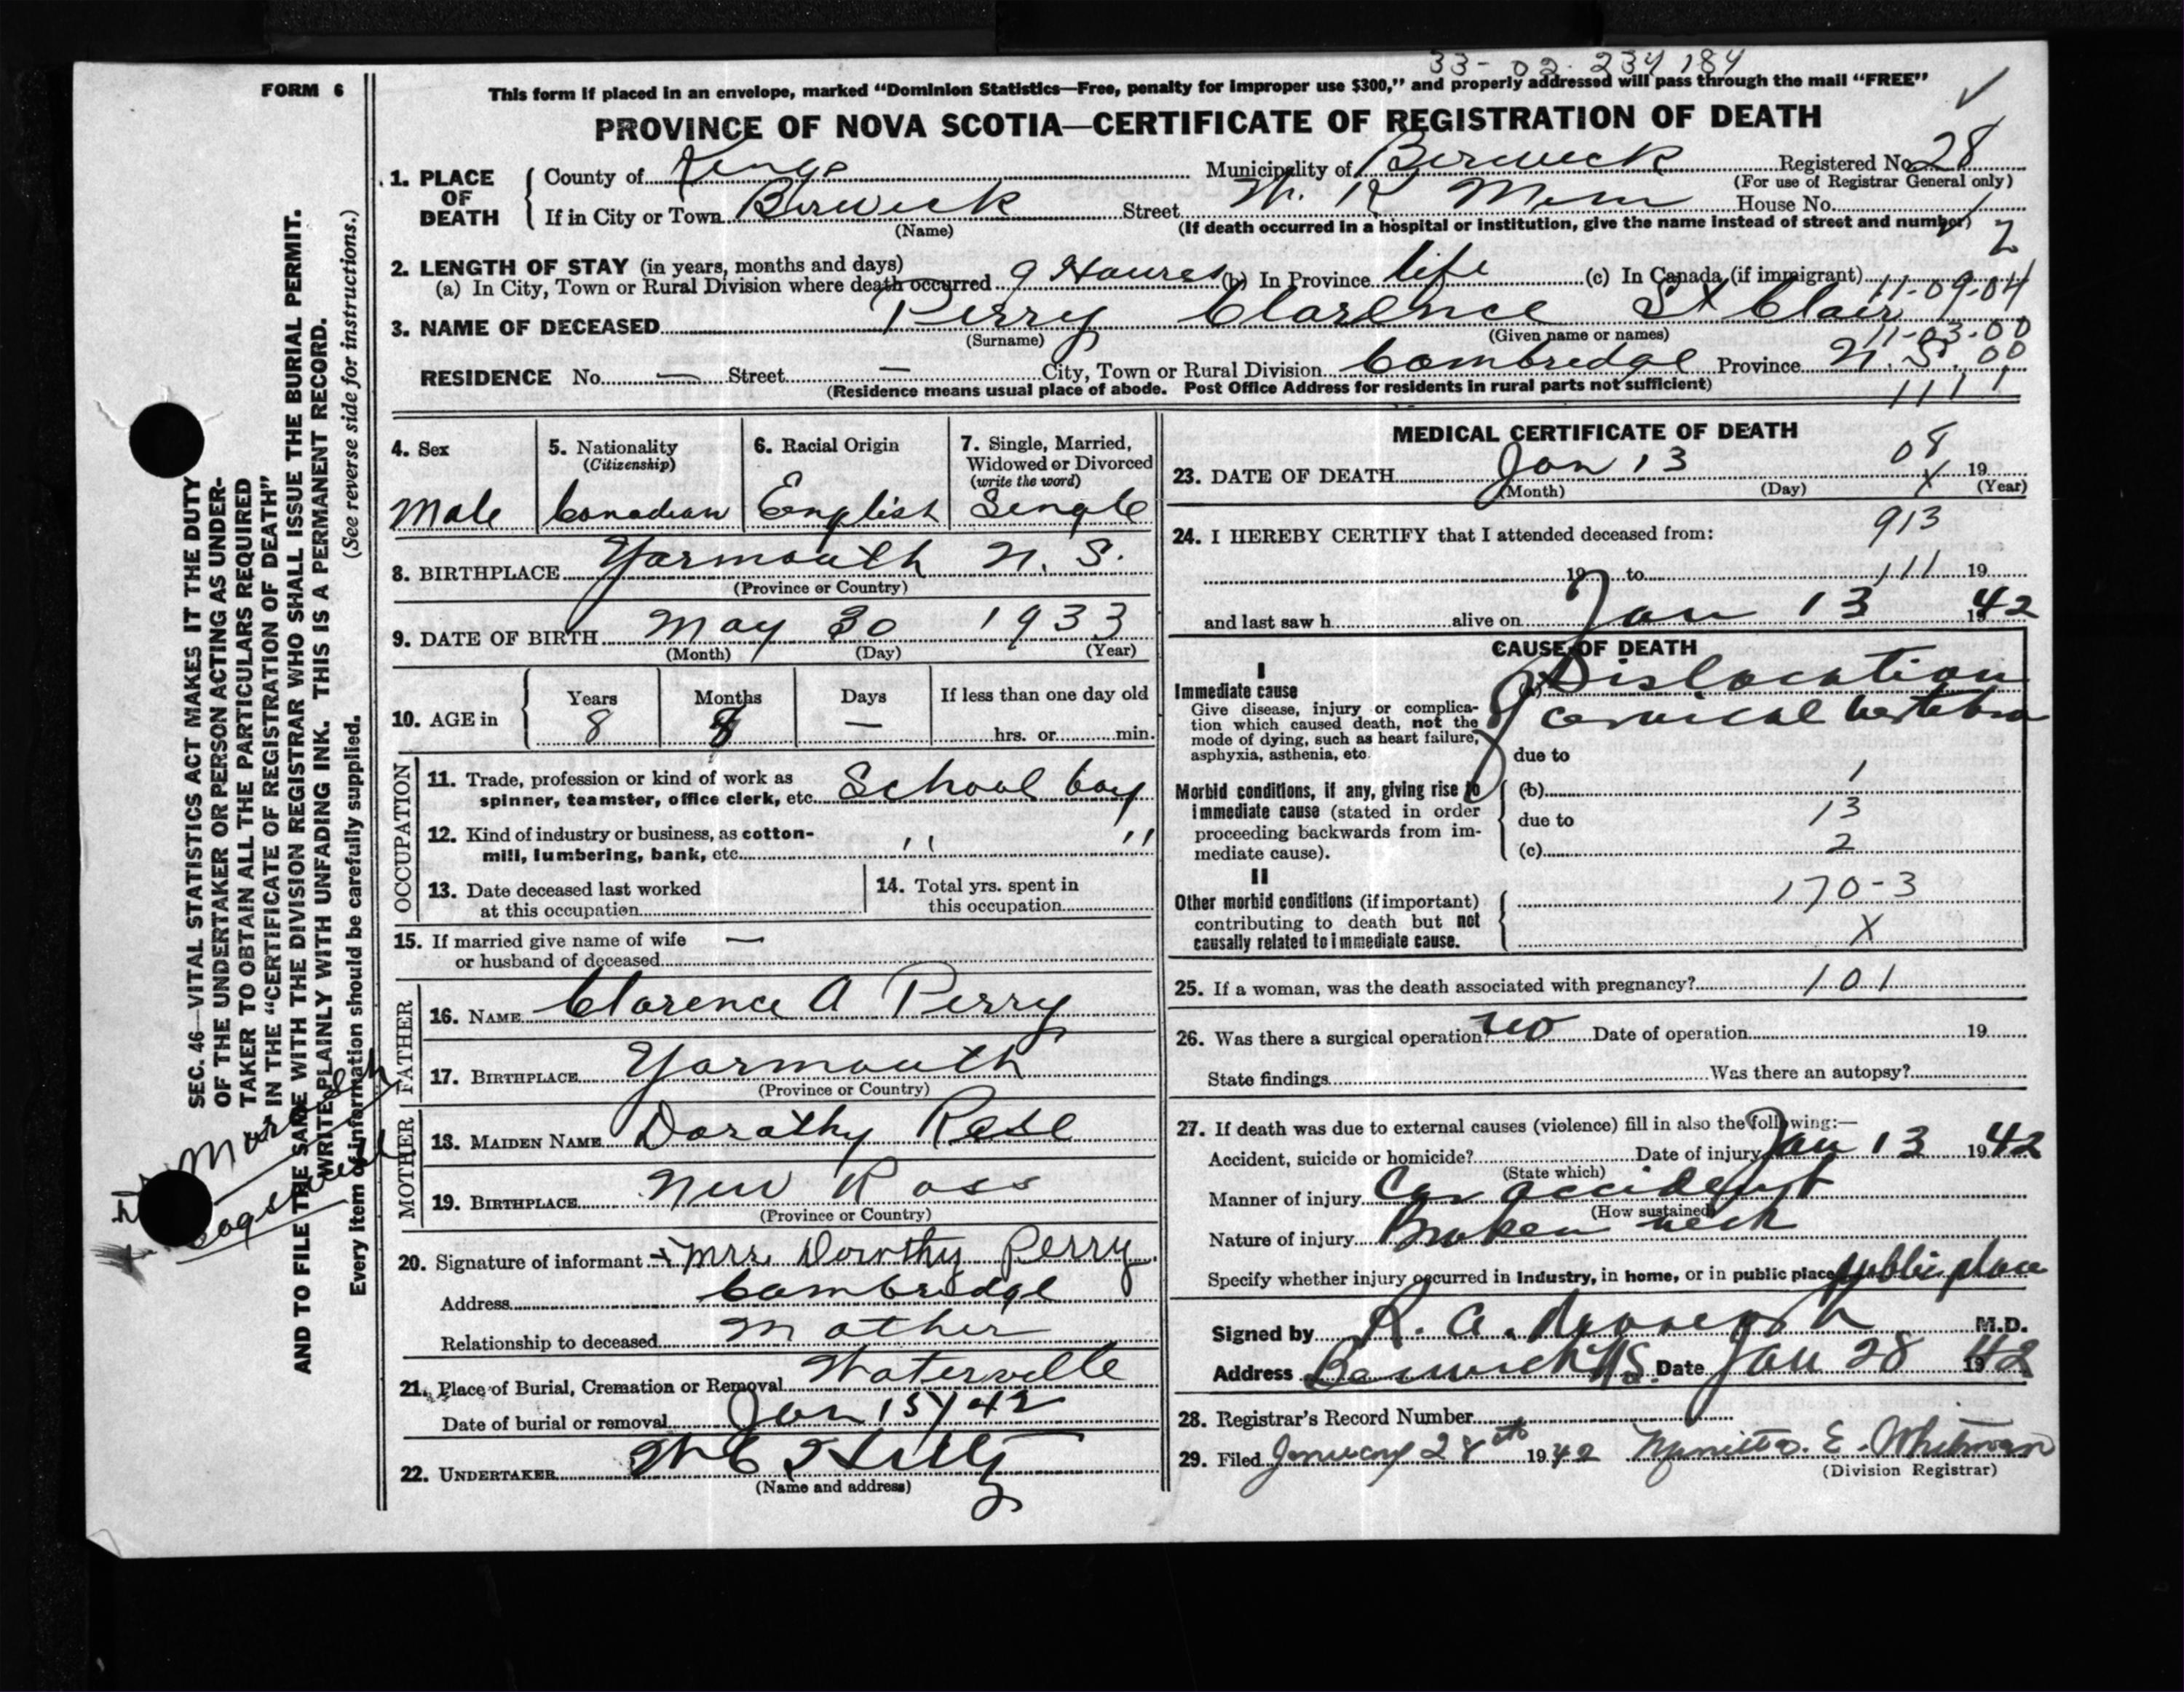 33-02-234 184
FORM 6
This form if placed in an envelope, marked "Dominion Statistics—Free, penalty for improper use $300," and properly addressed will pass through the mail "FREE"
PROVINCE OF NOVA SCOTIA—CERTIFICATE OF REGISTRATION OF DEATH
1. PLACE OF DEATH County of Kings Municipality of Berwick Registered No. 28
(For use of Registrar General only)
If in City or Town Berwick Street W. K. Mem House No.
(Name) (If death occurred in a hospital or institution, give the name instead of street and number)
2
2. LENGTH OF STAY (in years, months and days)
(a) In City, Town or Rural Division where death occurred 9 Houres (b) In Province life (c) In Canada (if immigrant)
11-09-04
3. NAME OF DECEASED Perry Clarence St Clair
(Surname) (Given name or names)
11-03-00
RESIDENCE No. — Street — City, Town or Rural Division Cambridge Province N. S. 00
(Residence means usual place of abode. Post Office Address for residents in rural parts not sufficient)
1111
4. Sex Male
5. Nationality (Citizenship) Canadian
6. Racial Origin English
7. Single, Married, Widowed or Divorced (write the word) Single
8. BIRTHPLACE Yarmouth N. S.
(Province or Country)
9. DATE OF BIRTH May 30 1933
(Month) (Day) (Year)
10. AGE in Years Months Days If less than one day old
8 8 — hrs. or min.
OCCUPATION
11. Trade, profession or kind of work as spinner, teamster, office clerk, etc. School boy
12. Kind of industry or business, as cotton-mill, lumbering, bank, etc. " "
13. Date deceased last worked at this occupation
14. Total yrs. spent in this occupation
15. If married give name of wife or husband of deceased —
FATHER
16. NAME Clarence A Perry
17. BIRTHPLACE Yarmouth
(Province or Country)
MOTHER
18. MAIDEN NAME Dorathy Rose
19. BIRTHPLACE New Ross
(Province or Country)
20. Signature of informant Mrs. Dorothy Perry
Address Cambridge
Relationship to deceased Mother
21. Place of Burial, Cremation or Removal Waterville
Date of burial or removal Jan 15/42
22. UNDERTAKER W E Hiltz
(Name and address)
MEDICAL CERTIFICATE OF DEATH
23. DATE OF DEATH Jan 13 08 19
(Month) (Day) X (Year)
24. I HEREBY CERTIFY that I attended deceased from:
913
19 to 111 19
and last saw h alive on Jan 13 1942
CAUSE OF DEATH
I
Immediate cause
Give disease, injury or complication which caused death, not the mode of dying, such as heart failure, asphyxia, asthenia, etc.
(a) Dislocation
cervical vertebra
due to
Morbid conditions, if any, giving rise to immediate cause (stated in order proceeding backwards from immediate cause).
(b) 1
due to 13
(c) 2
II
Other morbid conditions (if important) contributing to death but not causally related to immediate cause.
170-3
X
25. If a woman, was the death associated with pregnancy? 101
26. Was there a surgical operation? no Date of operation 19
State findings Was there an autopsy?
27. If death was due to external causes (violence) fill in also the following:—
Accident, suicide or homicide? Date of injury Jan 13 1942
(State which)
Manner of injury Car accident
(How sustained)
Nature of injury Broken neck
Specify whether injury occurred in industry, in home, or in public place public place
Signed by R. A. M.D.
Address Berwick N.S. Date Jan 28 1942
28. Registrar's Record Number
29. Filed January 28th 1942 E. Whitman
(Division Registrar)
SEC. 46—VITAL STATISTICS ACT MAKES IT THE DUTY
OF THE UNDERTAKER OR PERSON ACTING AS UNDER-
TAKER TO OBTAIN ALL THE PARTICULARS REQUIRED
IN THE "CERTIFICATE OF REGISTRATION OF DEATH"
AND TO FILE THE SAME WITH THE DIVISION REGISTRAR WHO SHALL ISSUE THE BURIAL PERMIT.
WRITE PLAINLY WITH UNFADING INK. THIS IS A PERMANENT RECORD.
Every item of information should be carefully supplied. (See reverse side for instructions.)